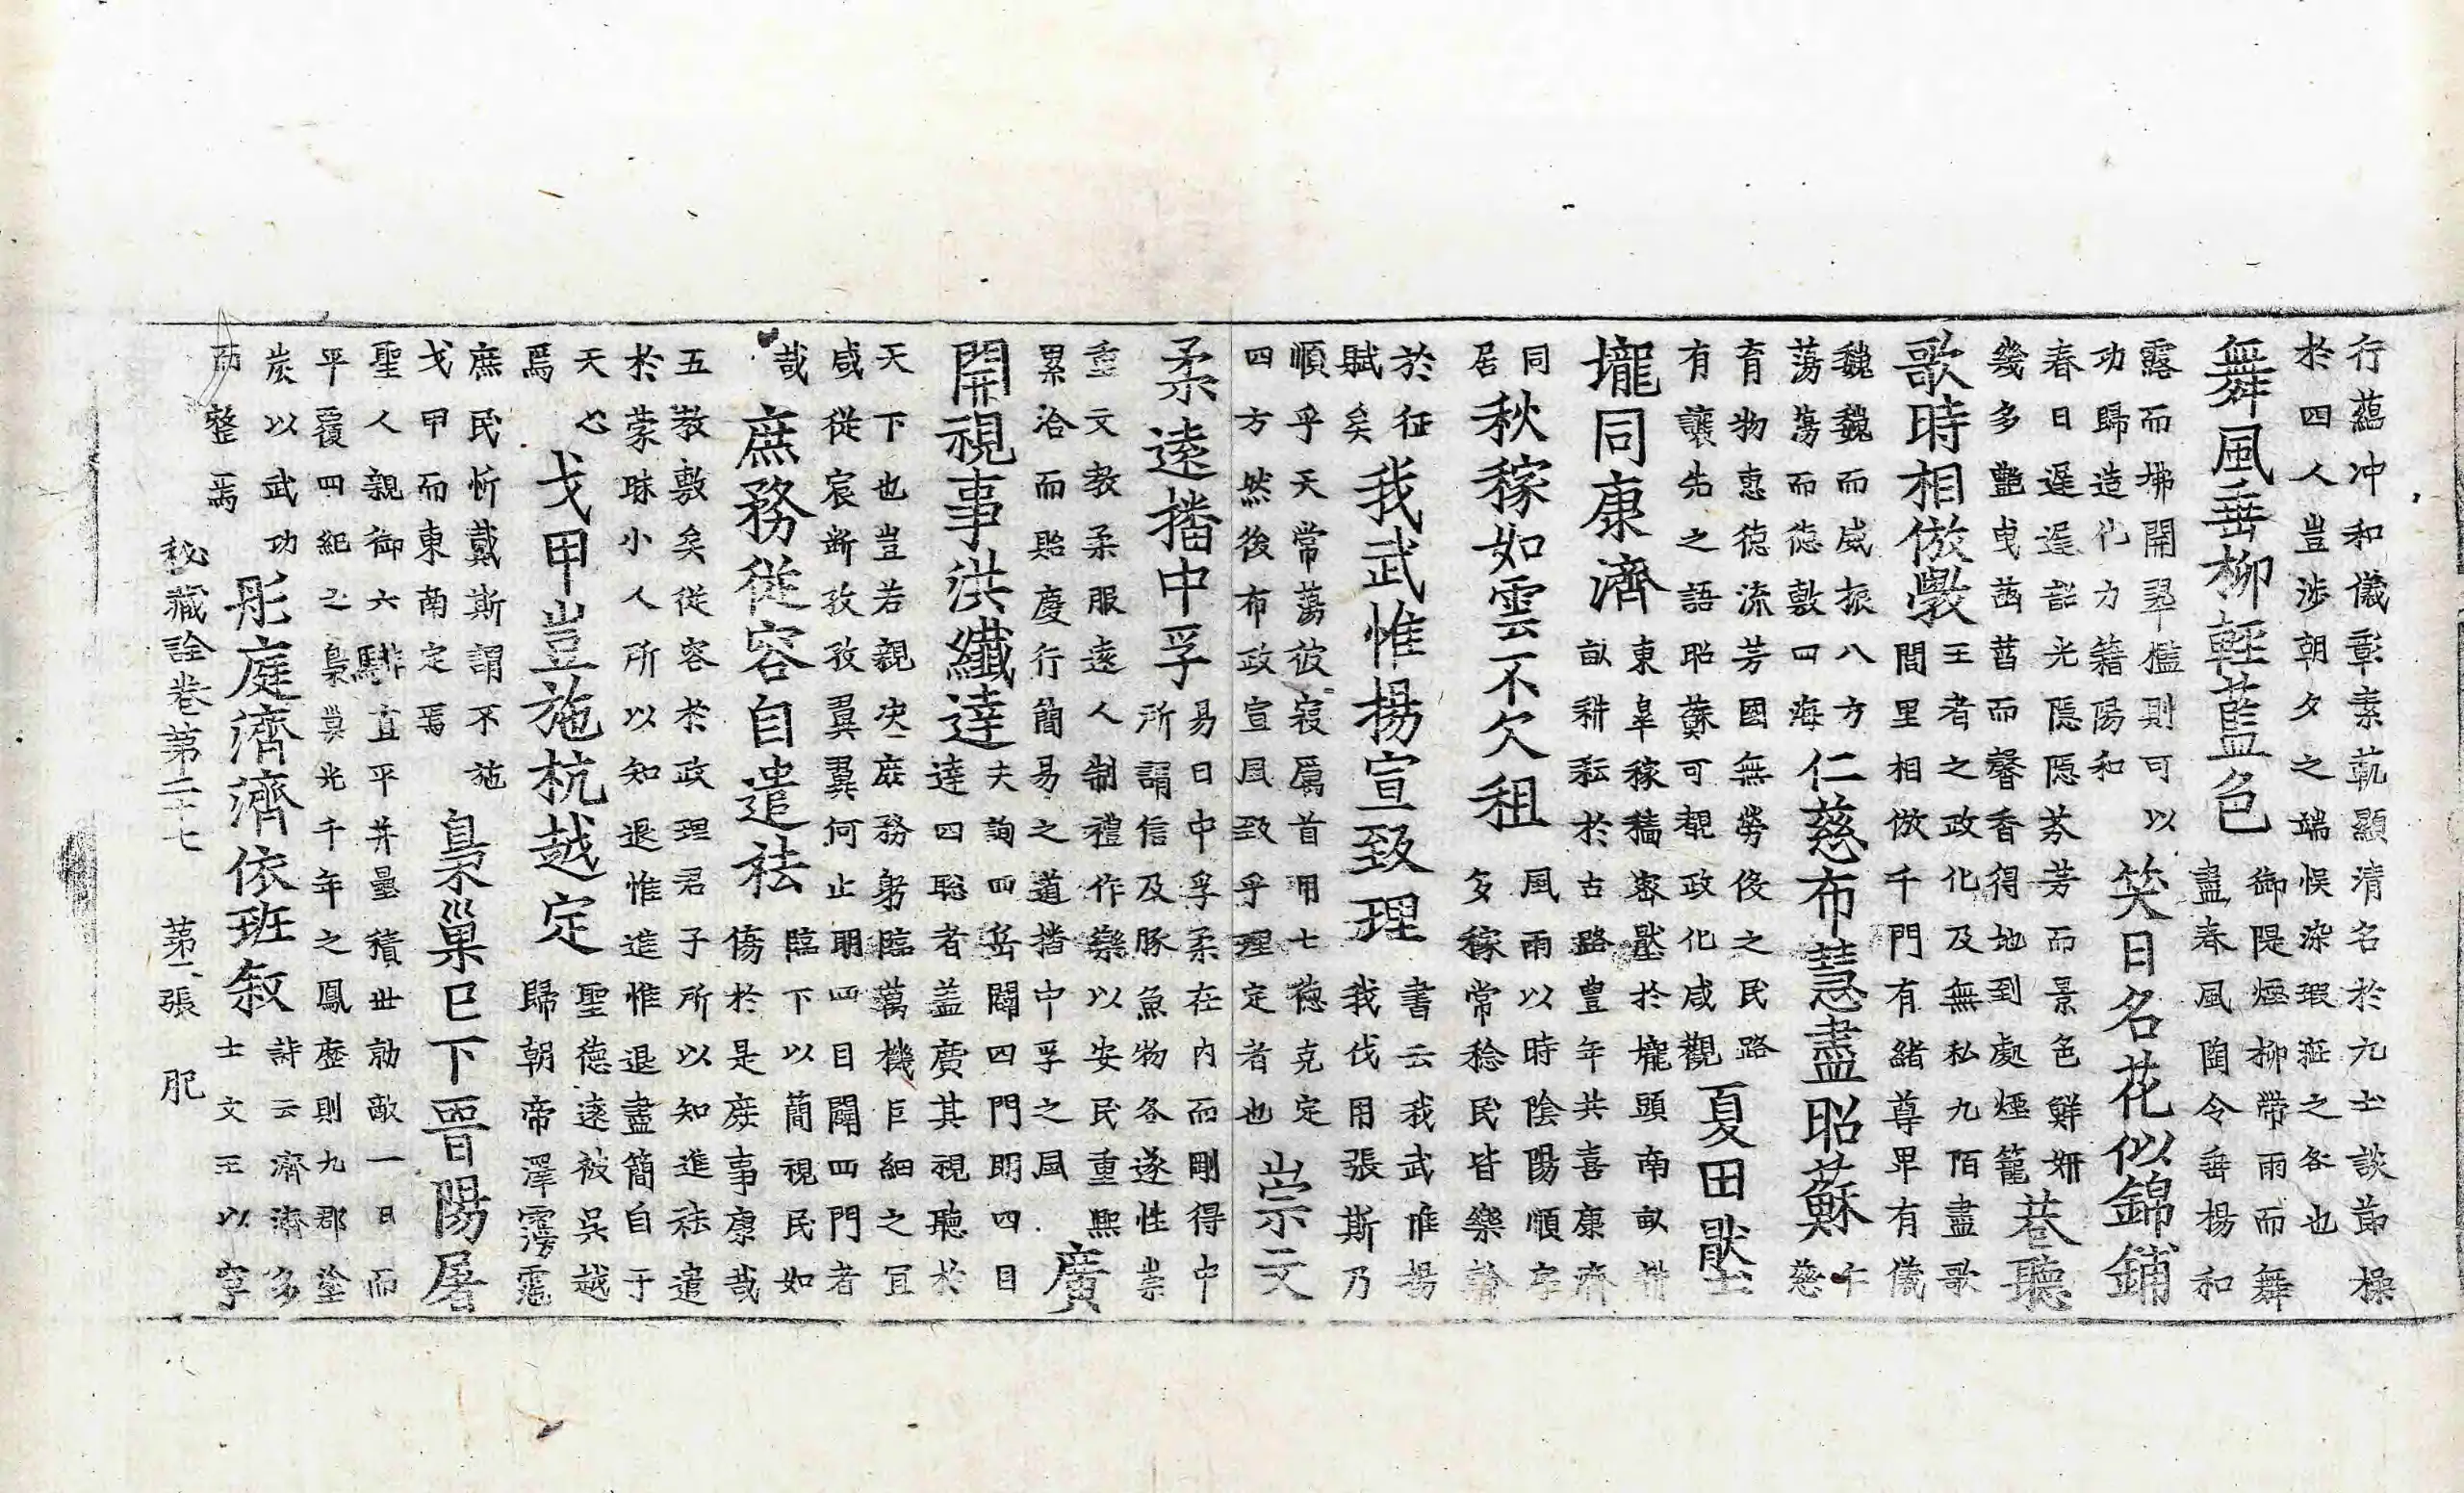 行蘊冲和儀彰素軌顯清名於九士談莭操
於四人豈涉朝夕之端悮染瑕涯之各也
舞風垂柳輕藍色
御隄煙柳帶雨而舞
盡春風陶令垂楊和
露而拂開翠檻則可以
功歸造化力籍陽和
笑日名花似錦鋪
春日遲遲韶光隠隠芬芳而景色鮮妍
幾多艶曳茜而馨香得地到處煙籠
巷聽
歌時相倣斆
王者之政化及無私九陌盡歌
閭里相倣千門有緒尊卑有儀
魏魏而威振八方
蕩蕩而徳敷四海
仁慈布慧盡昭蘇
千
慈
育物恵徳流芳國無勞役之民路
有讓先之語昭蘇可覩政化咸觀
夏田壓
壠同康濟
東皐稼穡密壓於壠頭南畝耕
畝耕耘於古路豊年共喜康濟
同
居
秋稼如雲不欠租
風雨以時陰陽順序
多稼常稔民皆樂
於征
賦矣
我武惟揚宣致理
書云我武惟揚
我伐用張斯乃
順乎天常蕩彼寇孱首用七徳克定
四方然後布政宣風致乎理定者也
崇文
柔遠播中孚
易曰中孚柔在内而剛得中
所謂信及豚魚物各遂性崇
重文教柔服遠人制禮作樂以安民重熈
累洽而貽慶行簡易之道播中孚之風
廣
開視事洪纎達
夫詢四岳闢四門明四目
達四聡者盖廣其視聽於
天下也豈若親决庶務躬臨萬機巨細之冝
咸從宸断孜孜翼翼何止明四目闢四門者
哉
庶務從容自遣袪
臨下以簡視民如
傷於是庶事康哉
五教敷矣從容於政理君子所以知進袪遣
於蒙昧小人所以知退惟進惟退盡簡自于
天心
焉
戈甲豈施杭越定
聖徳遠被呉越
歸朝帝澤霶霑
庶民忻戴斯謂不施
戈甲而東南定焉
梟巢已下晋陽屠
聖人親御六騑直平并壘積世勍敵一日而
平覆四紀之梟巢光千年之鳳歴則九郡塗
炭以武功
而整焉
彤庭濟濟依班叙
詩云濟濟多
士文王以寧
秘藏詮巻第二十七　第六張　肥